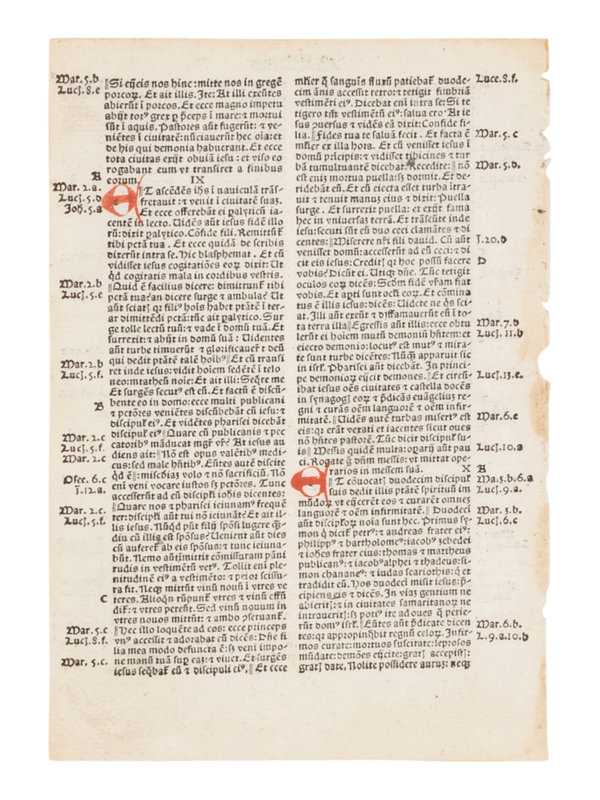 Mar. 5.b ‖Si eijcis nos hinc: mitte nos in gregē
Lucꝭ. 8.e porcoꝝ. Et ait illis. Ite: At illi exeūtes
abierūt ī porcos. Et ecce magno impetu
abijt totꝰ grex p̄ p̄ceps ī mare: ⁊ mortui
sūt ī aquis. Pastores aūt fugerūt: ⁊ ve-
niētes ī ciuitatē: nūciauerūt hec oīa: et
de his qui demonia habuerant. Et ecce
tota ciuitas exijt obuiā iesu: ⁊ viso eo
rogabant eum vt transiret a finibus
A eorum. IX
Mar. 2.a. ET ascēdēs ihs ī nauiculā trās-
Lucꝭ. 5.d fretauit: ⁊ venit ī ciuitatē suaꝫ.
Joh. 5.a Et ecce offerebāt ei palyticū ia-
centē in lecto. Uidēs aūt iesus fidē illo
rū: dixit palytico. Cōfide fili. Remittūt̄
tibi pctā tua. Et ecce quidā de scribis
dixerūt intra se. Hic blasphemat. Et cū
vidisset iesus cogitatiōes eoꝝ dixit: Ut
qd cogitatis mala in cordibus vestris.
Mar. 2.b ‖Quid ē facilius dicere: dimittunt̄ tibi
Lucꝭ. 5.e pctā tua: an dicere surge ⁊ ambula? Ut
aūt sciatꝭ qꝛ filiꝰ hoīs habet ptātē ī ter-
ra dimittēdi pctā: tūc ait palytico. Sur
ge tolle lectū tuū: ⁊ vade ī domū tuā. Et
surrexit: ⁊ abijt in domū suā: Uidentes
aūt turbe timuerūt ⁊ glorificauerūt deū
Mar. 2.b qui dedit ptātē talē hoībꝰ‖ Et cū transi
Lucꝭ. 5.f. ret inde iesus: vidit hoiem sedētē ī telo
neo: matheū noīe: Et ait illi: Seqre me
Et surgēs secutꝰ est eū. Et factū ē discū-
B bente eo in domo: ecce multi publicani
⁊ pctōres veniētes discūbebāt cū iesu: ⁊
discipuł eiꝰ. Et vidētes pharisei dicebāt
Mar. 2.c discipuł eiꝰ‖ Quare cū publicanis ⁊ pec
Lucꝭ. 5.f. catoribꝰ māducat mgr̄ vr̄? At iesus au
Mar. 2.c diens ait: ‖Nō est opus valētibꝰ medi-
cus: sed male hn̄tibꝰ. Eūtes autē discite
Osee. 6.c qd ē: ‖misc̄diaꝫ volo ⁊ nō sacrificiū. Nō
ī. 12.a. eni veni vocare iustos sꝫ pctōres. Tunc
accesserūt ad eū discipłi iohīs dicentes:
Mar. 2.c. ‖Quare nos ⁊ pharisei ieiunamꝰ frequē
Lucꝭ. 5.f. ter: discipłi aūt tui nō ieiunāt? Et ait il-
lis iesus. Nūqd pn̄t filij spōsi lugere qͫ-
diu cū illis est spōsus? Uenient aūt dies
cū auferet̄ ab eis spōsus: ⁊ tunc ieiuna-
būt. Nemo aūt īmittit cōmissuram pāni
rudis in vestimētū vetꝰ. Tollit eni ple-
nitudinē eiꝰ a vestimēto: ⁊ prior scissu-
ra fit. Neqꝫ mittūt vinū nouū ī vtres ve
C teres. Alioqn̄ rūpunt̄ vtres ⁊ vinū effū
dit̄: ⁊ vtres pereūt. Sed vinū nouum in
vtres nouos mittūt: ⁊ ambo p̄seruant̄.
Mar. 5.c ‖Hec illo loquēte ad eos: ecce princeps
Lucꝭ. 8.f. vnꝰ accessit ⁊ adorabat eū dicēs: Dn̄e fi
lia mea modo defuncta ē: sꝫ veni impo-
Mar. 5.c. ne manū tuā sup eaꝫ: ⁊ viuet. Et surgēs
iesus seqbat̄ eū ⁊ discipuli eiꝰ.‖ Et ecce
mlier q̄ sanguīs fluxū patiebat̄ duode- Luce. 8.f.
cim ānis accessit retro: ⁊ tetigit fimbriā
vestimēti eiꝰ. Dicebat eni intra se: Si te
tigero tm̄ vestimētū eiꝰ: salua ero. At ie
sus ꝯuersus ⁊ vidēs eā dixit: Confide fi-
lia. ‖Fides tua te saluā fecit. Et facta ē Mar. 5.c
mlier ex illa hora. Et cū venisset iesus ī
domū prīcipis: ⁊ vidisset tibicines ⁊ tur
bā tumultuantē dicebat. Recedite: ‖nō Mar. 5.d.
est eniꝫ mortua puella: sꝫ dormit. Et de-
ridebāt eū. Et cū eiecta esset turba ītra-
uit ⁊ tenuit manuꝫ eius ⁊ dixit: Puella
surge. Et surrexit puella: et exijt fama
hec in vniuersaꝫ terrā. Et trāseūte inde
iesu: secuti sūt eū duo ceci clamātes ⁊ di
centes: ‖Miserere nr̄i fili dauid. Cū aūt ī. 20.d
venisset domū: accesserūt ad eū ceci: ⁊ di
cit eis iesus: Creditꝭ qꝛ hoc possū facere D
vobis? Dicūt ei. Utiqꝫ dn̄e. Tūc tetigit
oculos eoꝝ dicēs: Scdm fidē vr̄am fiat
vobis. Et apti sunt ocłi eoꝝ. Et cōmina
tus ē illis iesus: dicēs: Uidete ne qs sci-
at. Illi aūt exeūt ⁊ diffamauerūt eū ī to
ta terra illa‖ Egressis aūt illis: ecce obtu Mar. 7.d
lerūt ei hoiem mutū demoniū hn̄tem: et Lucꝭ. 11.b
eiecto demonio: locutꝰ est mutꝰ ⁊ mira-
te sunt turbe dicētes: Nūqͫ apparuit sic
in isrł. Pharisei aūt dicebāt. In princi-
pe demonioꝝ eijcit demones. ‖Et circū- Lucꝭ. 13.e.
ibat iesus oēs ciuitates ⁊ castella docēs
in synagogꝭ eoꝝ ⁊ p̄dicās euāgeliuꝫ re-
gni ⁊ curās oēm languorē ⁊ oēm infir-
mitatē. ‖Uidēs autē turbas misertꝰ est Mar. 6.e
eis: qꝛ erāt vexati et iacentes sicut oues
nō hn̄tes pastorē. Tūc dicit discipuł su-
is‖ Messis quidē multa: opaꝛij aūt pau Lucꝭ. 10.a
ci. Rogate ḡ dn̄m messis: vt mittat ope-
rarios in messem suā. X A
ET cōuocatꝭ duodecim discipuł Ma. 3.b. 6.a
suis dedit illis ptātē spirituū im Lucꝭ. 9.a.
mūdoꝝ vt eijcerēt eos ⁊ curarēt omneꝫ
languorē ⁊ oēm infirmitatē. ‖Duodeci Mar. 3.b.
aūt discipłoꝝ noīa sunt hec. Primus sy Lucꝭ. 6.c
mon q̄ dicit̄ petrꝰ: ⁊ andreas frater eiꝰ:
philippꝰ ⁊ bartholomeꝰ: iacobꝰ zebedei
⁊ iohēs frater eius: thomas ⁊ mattheus
publicanꝰ: ⁊ iacobꝰ alphei ⁊ thadeus: si-
mon chananeꝰ: ⁊ iudas scariothis: q̄ et
tradidit eū. Hos duodeci misit iesus: p̄-
cipiens eis ⁊ dicēs. In viaꝫ gentium ne
abieritꝭ: ⁊ in ciuitates samaritanoꝝ ne
intraueritꝭ: sꝫ potiꝰ ite ad oues q̄ perie-
rūt domꝰ isrł. ‖Eūtes aūt p̄dicate dicen Mar. 6.b.
tes: qꝛ appropinq̄bit regnū celoꝝ. Infir- L. 9.a. 10.b
mos curate: mortuos suscitate: leprosos
mūdate: demōes eijcite: gratꝭ accepistꝭ:
gratꝭ date. Nolite possidere auruꝫ: neqꝫ